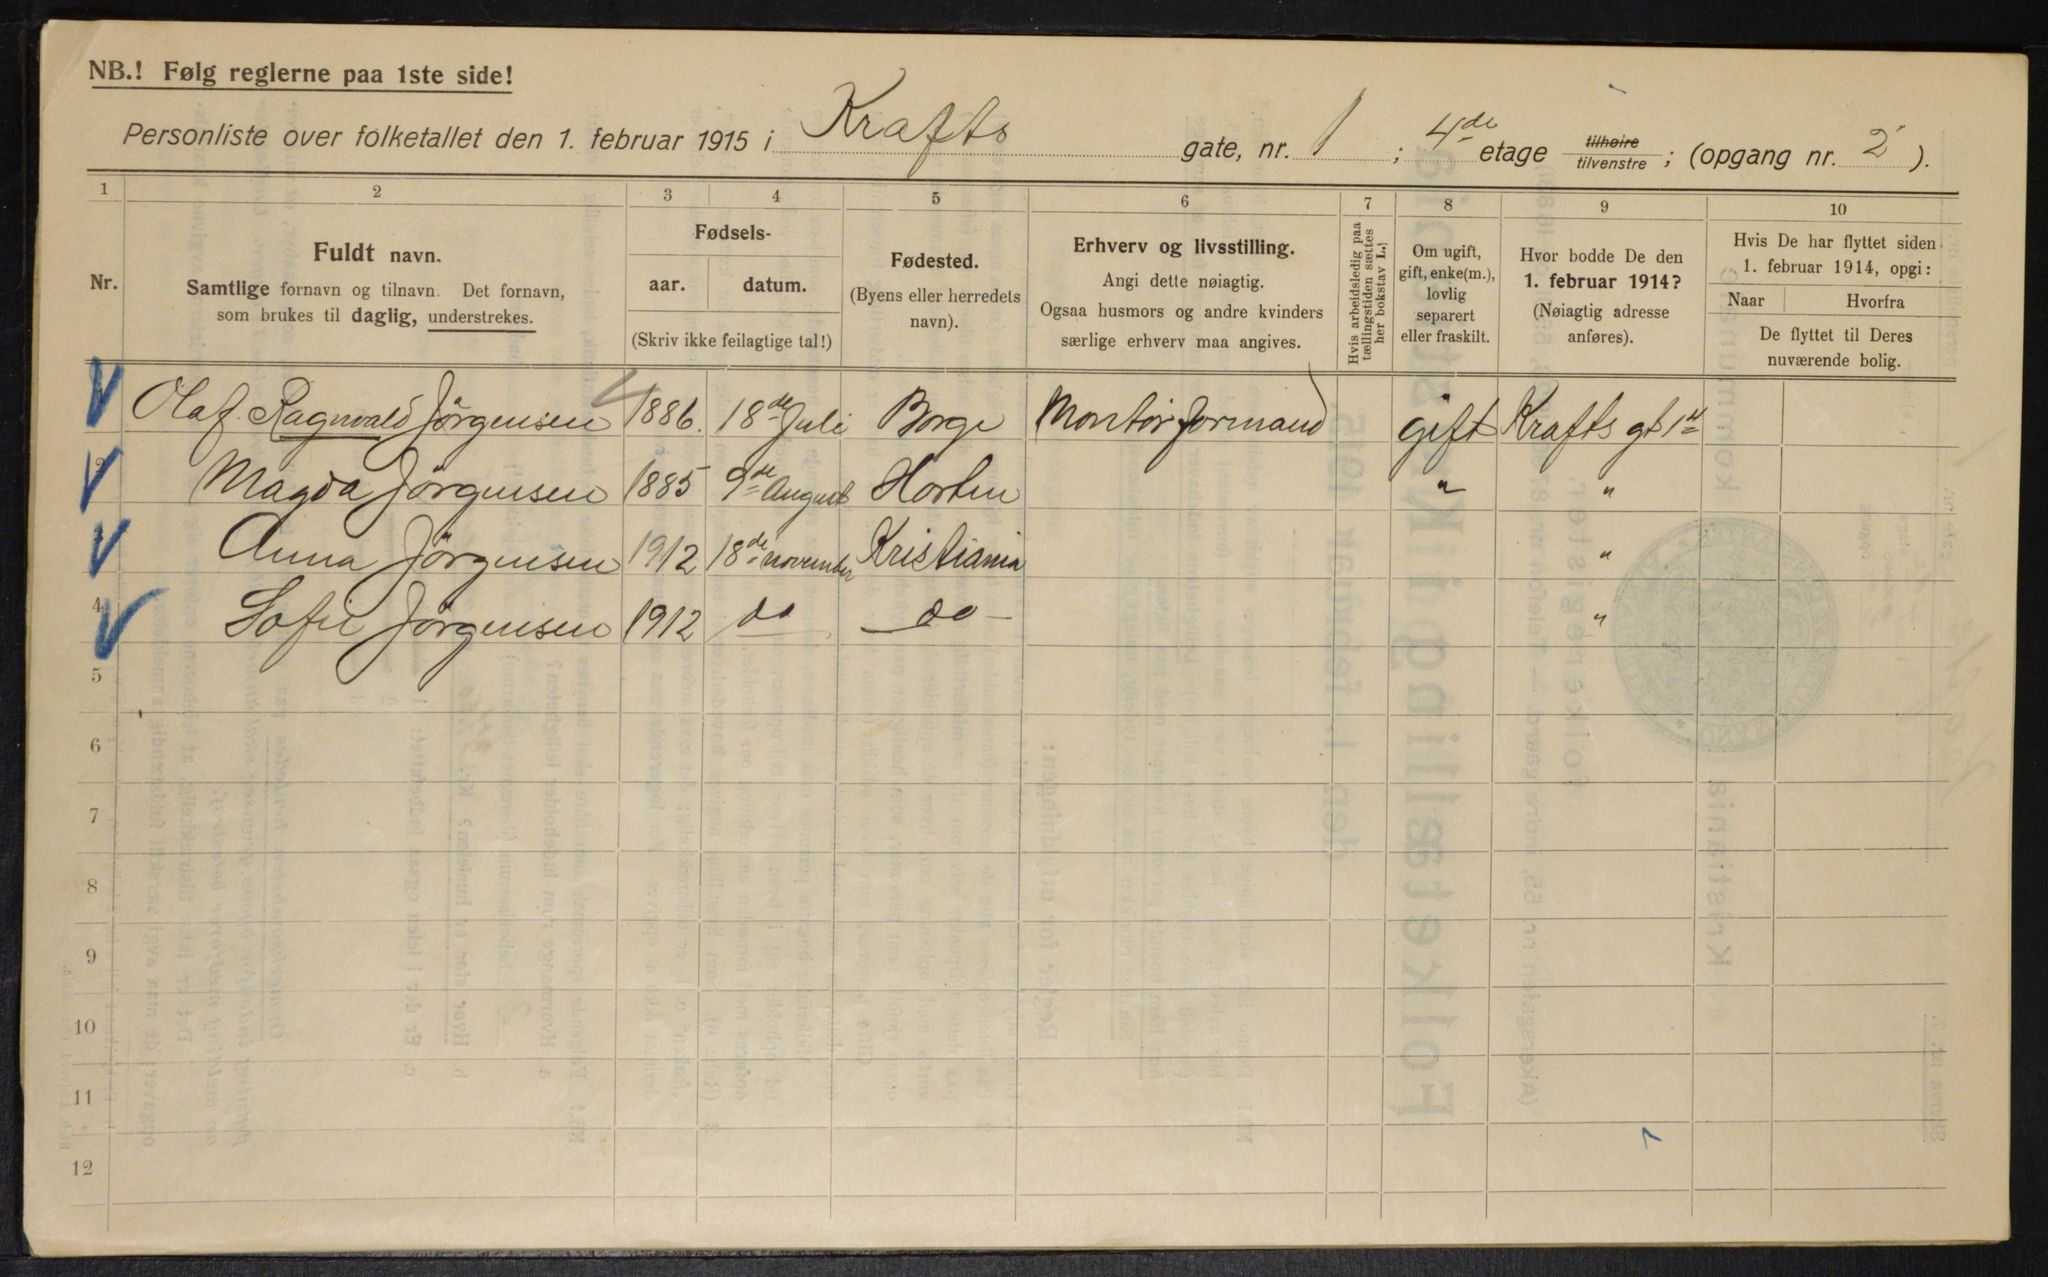 NB.! Følg reglerne paa 1ste side!
Personliste over folketallet den 1. februar 1915 i Krafts gate, nr. 1 ; 4de etage tilhøire tilvenstre ; (opgang nr. 2 ).
1 2 3 4 5 6 7 8 9 10
Nr.
Fuldt navn.
Samtlige fornavn og tilnavn. Det fornavn,
som brukes til daglig, understrekes.
Fødsels-
aar. datum.
(Skriv ikke feilagtige tal!)
Fødested.
(Byens eller herredets
navn).
Erhverv og livsstilling.
Angi dette nøiagtig.
Ogsaa husmors og andre kvinders
særlige erhverv maa angives.
Hvis arbeidsledig paa
tællingstiden sættes
her bokstav L.
Om ugift,
gift, enke(m.),
lovlig
separert
eller fraskilt.
Hvor bodde De den
1. februar 1914?
(Nøiagtig adresse
anføres).
Hvis De har flyttet siden
1. februar 1914, opgi:
Naar Hvorfra
De flyttet til Deres
nuværende bolig.
Olaf Ragnvald Jörgensen 1886. 18de Juli Borge Montörformand gift Krafts gt 1
2 Magda Jörgensen 1885 9de August Horten " "
Anna Jörgensen 1912 18de november Kristiania "
4 Sofie Jörgensen 1912 do do "
5
6
7
8
9
10
11
12